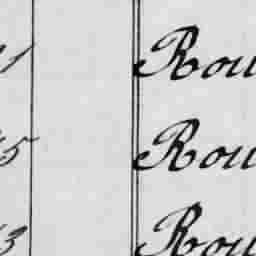 1 Rou
5 Rou
3 Rou